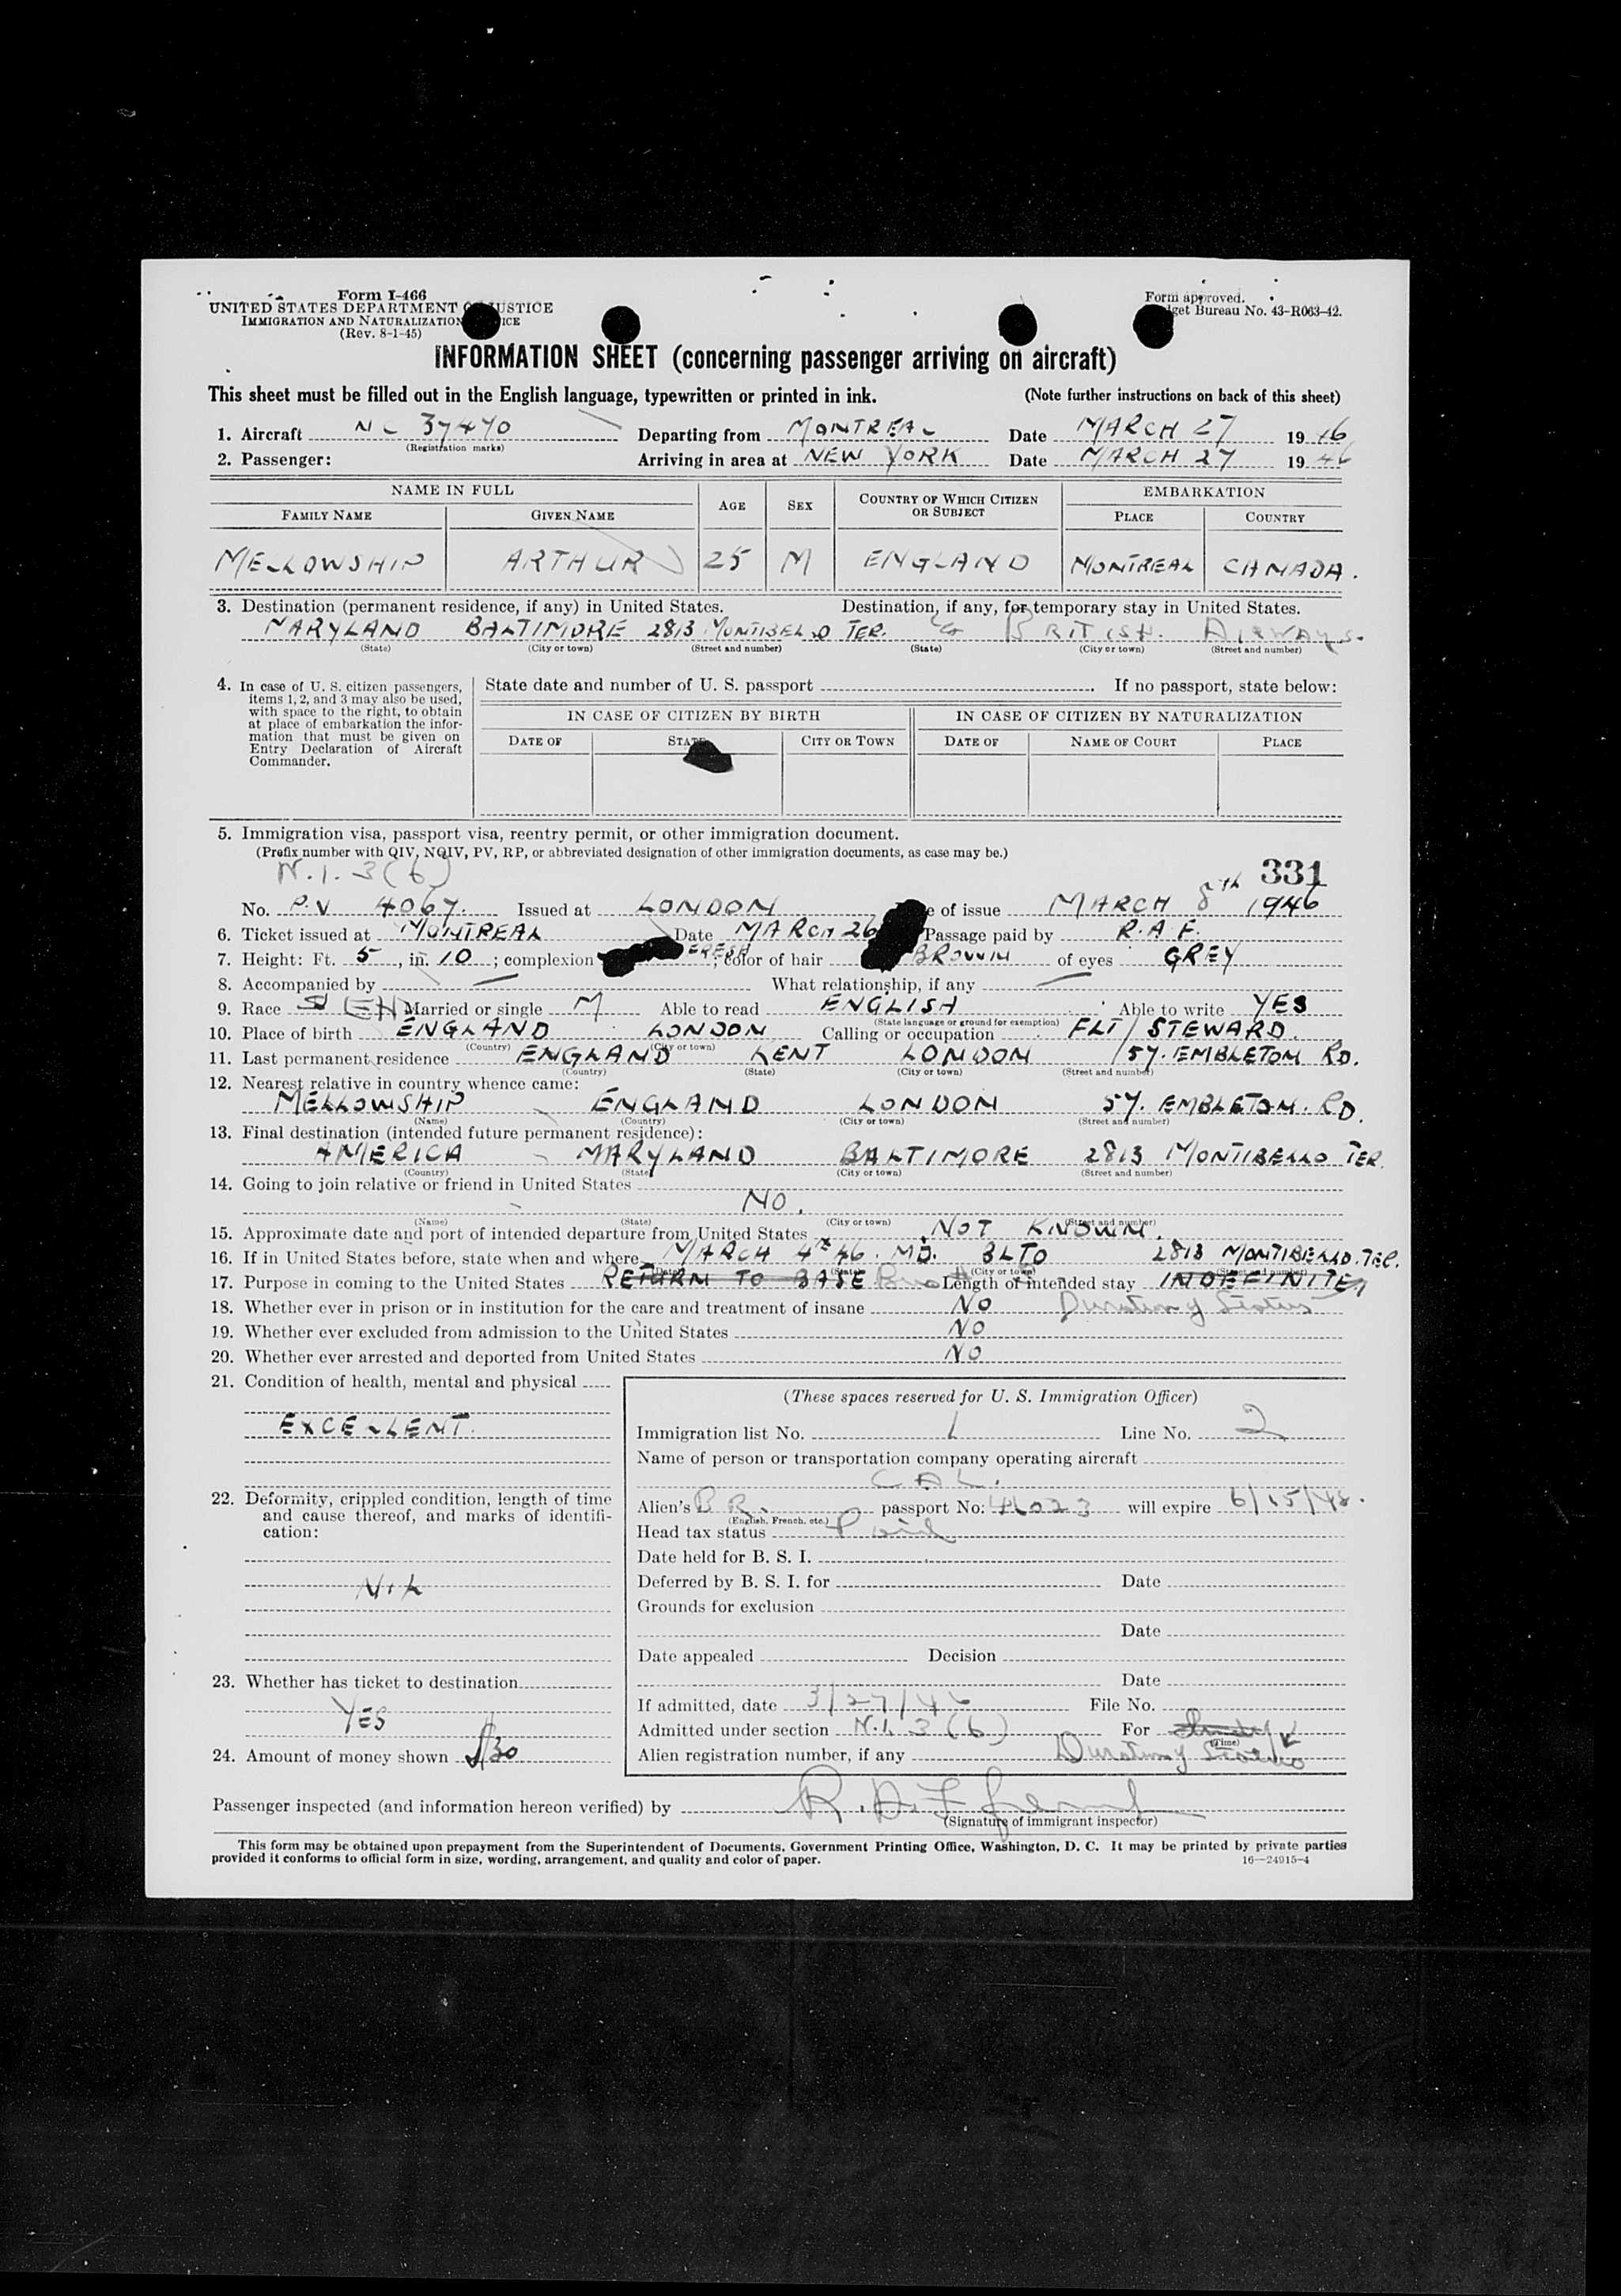 Form I-466
UNITED STATES DEPARTMENT JUSTICE
IMMIGRATION AND NATURALIZATION
(Rev. 8-1-45)
Form approved.
Bureau No. 43-R063-42.
INFORMATION SHEET (concerning passenger arriving on aircraft)
This sheet must be filled out in the English language, typewritten or printed in ink. (Note further instructions on back of this sheet)
1. Aircraft NC 37470 Departing from MONTREAL Date MARCH 27 1946
(Registration marks)
2. Passenger: Arriving in area at NEW YORK Date MARCH 27 1946
NAME IN FULL AGE SEX COUNTRY OF WHICH CITIZEN OR SUBJECT EMBARKATION
FAMILY NAME GIVEN NAME PLACE COUNTRY
MELLOWSHIP ARTHUR 25 M ENGLAND MONTREAL CANADA.
3. Destination (permanent residence, if any) in United States. Destination, if any, for temporary stay in United States.
MARYLAND BALTIMORE 2813 MONTIBELLO TER. BRITISH. AIRWAYS.
(State) (City or town) (Street and number) (State) (City or town) (Street and number)
4. In case of U. S. citizen passengers, items 1, 2, and 3 may also be used, with space to the right, to obtain at place of embarkation the information that must be given on Entry Declaration of Aircraft Commander.
State date and number of U. S. passport . If no passport, state below:
IN CASE OF CITIZEN BY BIRTH IN CASE OF CITIZEN BY NATURALIZATION
DATE OF STATE CITY OR TOWN DATE OF NAME OF COURT PLACE
5. Immigration visa, passport visa, reentry permit, or other immigration document.
(Prefix number with QIV, NQIV, PV, RP, or abbreviated designation of other immigration documents, as case may be.)
N.I. 3(6) 331
No. P.V 4067. Issued at LONDON of issue MARCH 8th 1946
6. Ticket issued at MONTREAL Date MARCH 26 Passage paid by R.A.F.
7. Height: Ft. 5, in. 10; complexion FRESH; color of hair BROWN of eyes GREY
8. Accompanied by — What relationship, if any —
9. Race EN Married or single M Able to read ENGLISH Able to write YES
(State language or ground for exemption)
10. Place of birth ENGLAND LONDON Calling or occupation FLT/STEWARD.
(Country) (City or town)
11. Last permanent residence ENGLAND KENT LONDON 57. EMBLETON RD.
(Country) (State) (City or town) (Street and number)
12. Nearest relative in country whence came:
MELLOWSHIP ENGLAND LONDON 57. EMBLETON. RD.
(Name) (Country) (City or town) (Street and number)
13. Final destination (intended future permanent residence):
AMERICA MARYLAND BALTIMORE 2813 MONTIBELLO TER.
(Country) (State) (City or town) (Street and number)
14. Going to join relative or friend in United States
NO.
(Name) (State) (City or town) (Street and number)
15. Approximate date and port of intended departure from United States NOT KNOWN.
16. If in United States before, state when and where MARCH 4th 46. MD. BLTO 2813 MONTIBELLO.TER.
(Date) (State) (City or town) (Street and number)
17. Purpose in coming to the United States RETURN TO BASE Length of intended stay INDEFINITE
18. Whether ever in prison or in institution for the care and treatment of insane NO Duration of Status
19. Whether ever excluded from admission to the United States NO
20. Whether ever arrested and deported from United States NO
21. Condition of health, mental and physical
EXCELLENT.
22. Deformity, crippled condition, length of time and cause thereof, and marks of identification:
NIL
23. Whether has ticket to destination
YES
24. Amount of money shown $30
(These spaces reserved for U. S. Immigration Officer)
Immigration list No. 1 Line No. 2
Name of person or transportation company operating aircraft
CAL.
Alien's BR. passport No. 41023 will expire 6/15/48.
(English, French, etc.)
Head tax status Paid
Date held for B. S. I.
Deferred by B. S. I. for Date
Grounds for exclusion
Date
Date appealed Decision
Date
If admitted, date 3/27/46 File No.
Admitted under section N.I. 3(6) For
(Time)
Alien registration number, if any Duration of Status
Passenger inspected (and information hereon verified) by
(Signature of immigrant inspector)
This form may be obtained upon prepayment from the Superintendent of Documents, Government Printing Office, Washington, D. C. It may be printed by private parties
provided it conforms to official form in size, wording, arrangement, and quality and color of paper. 16—24915-4